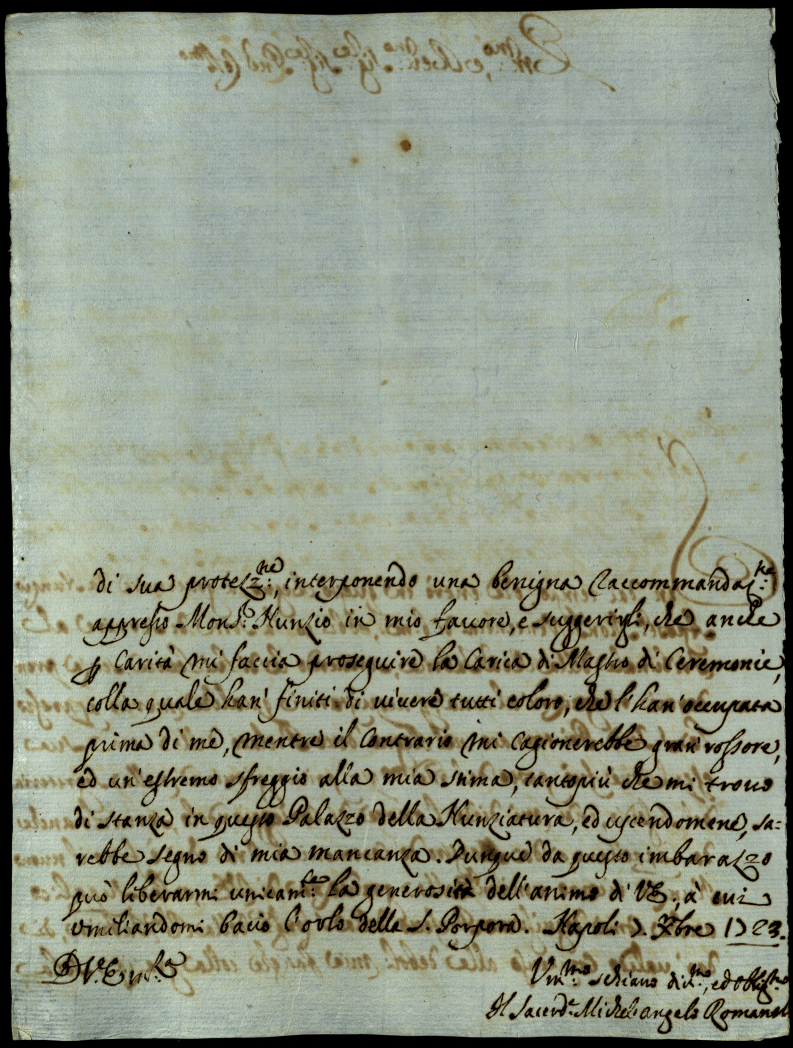 di sua protez:ne, interponendo una benigna Raccommandaz:ne
appresso Mons.r Nunzio in mio favore, e suggerirgli, che anche
p Carità mi faccia proseguire la Carica di Mastro di Ceremonie,
colla quale han' finiti di vivere tutti coloro, che l'han' occupata
prima di me, mentre il Contrario mi Cagionerebbe gran' rossore,
ed un'estremo sfreggio alla mia stima, tantopiù che mi trovo
di stanza in questo Palazzo della Nunziatura, ed uscendomene, sa=
rebbe segno di mia mancanza. Dunque da questo imbarazzo
può liberarmi unicam:te la generosità dell'animo di VE., à cui
umiliandomi bacio l'orlo della S. Porpora. Napoli 7. Xbre 1723.
D V. Em.za
Um:mo schiavo di:mo, ed obblig:mo
Il Sacerd.e Michel'angelo Romanel